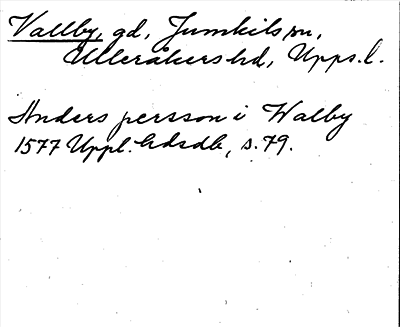 Vallby, gd, Jumkils sn,
Ulleråkers hd, Upps. l.
Anders persson i Walby
1577 Uppl. Edsdb, s. 79.